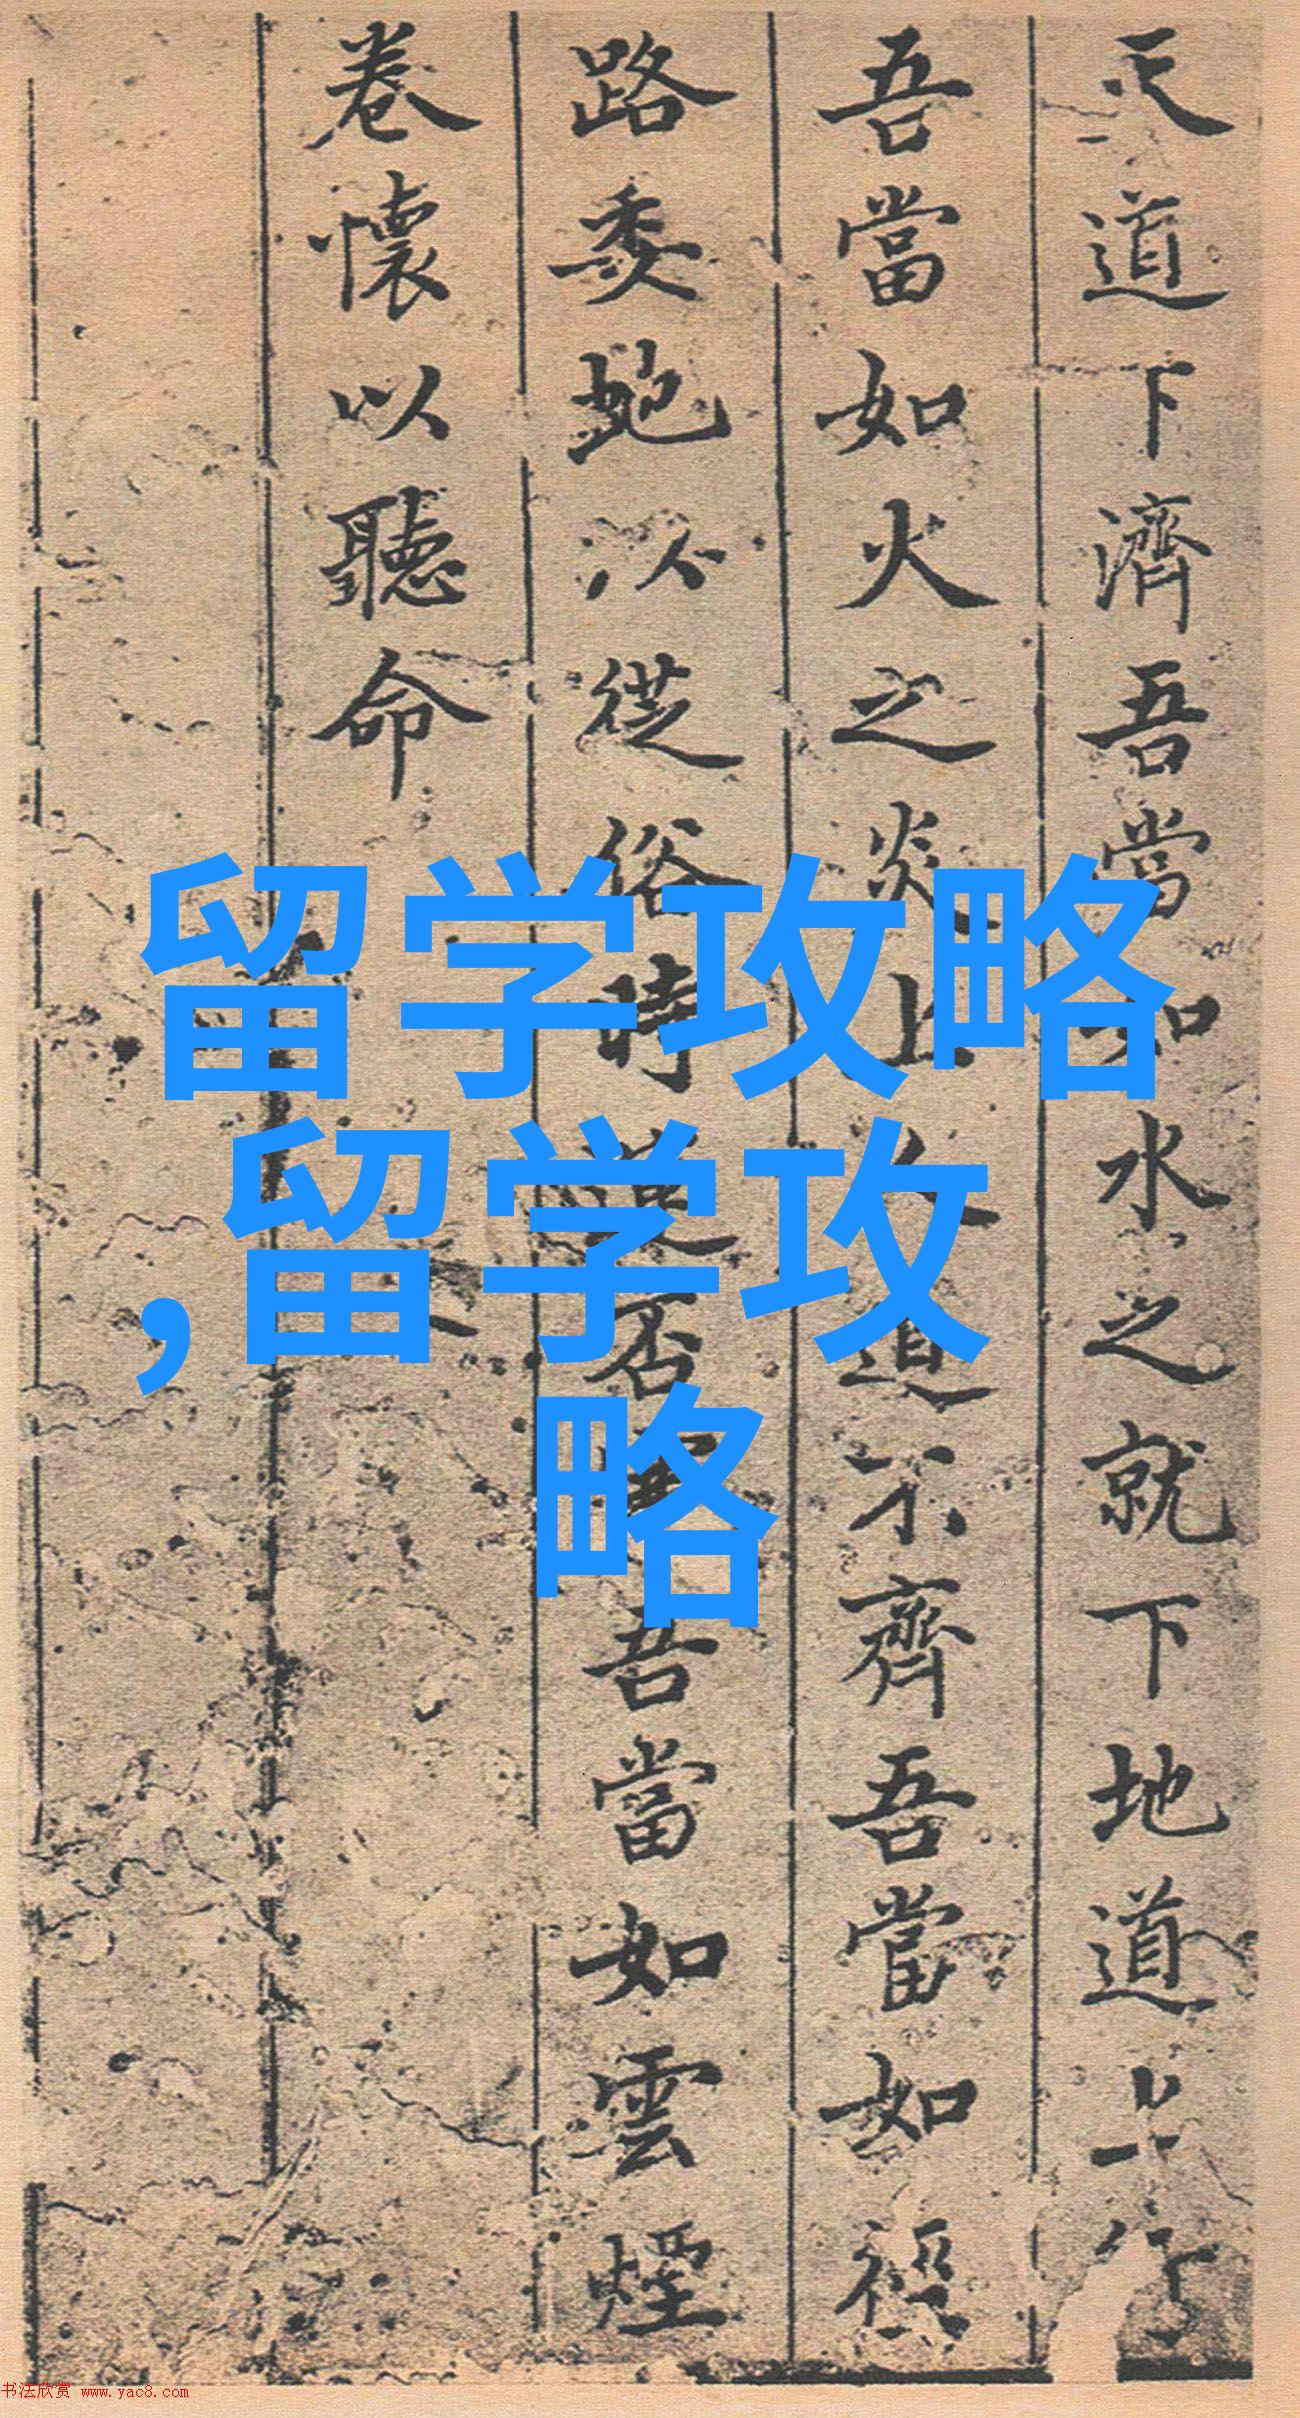 天道下濟吾當如水之就下地道上行
吾當如火之炎上人道不齊吾當如
路委蛇以從俗時
否吾當如雲煙
卷懷以聽命
留学攻略
,留学攻
略
书法欣赏 www.yac8.com